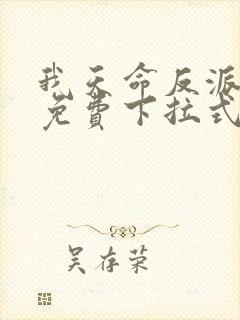 我天命反派
免费下拉式
吴存荣